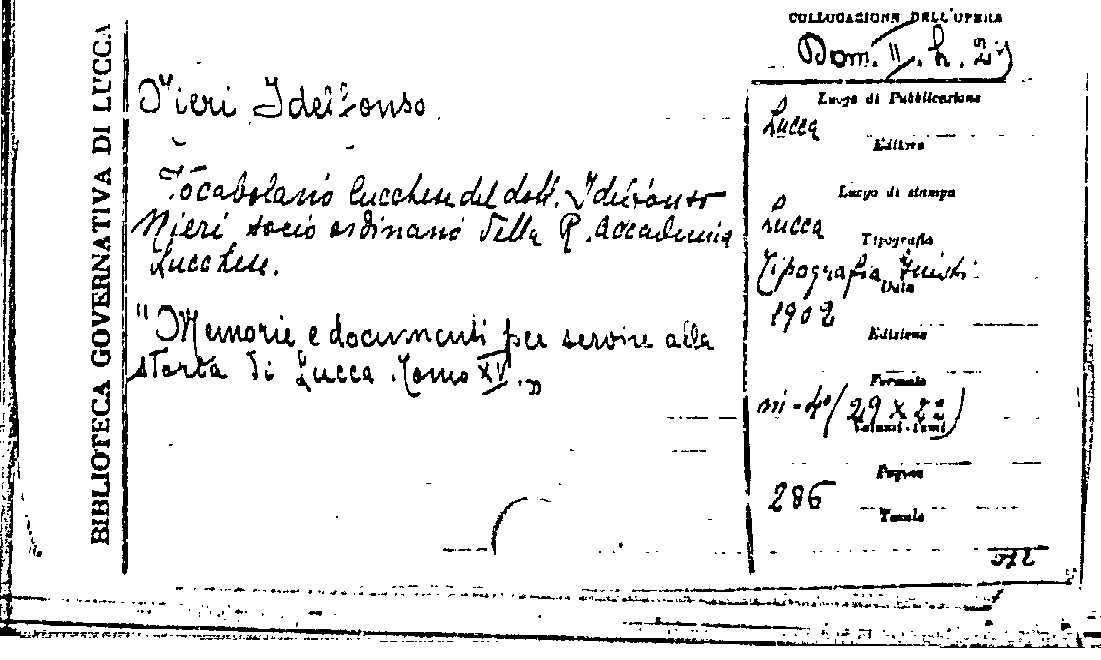 BIBLIOTECA GOVERNATIVA DI LUCCA
Nieri Idelfonso
Vocabolario Lucchese del dott. Idelfonso
Nieri socio ordinario della R. Accademia
Lucchese.
"Memorie e documenti per servire alla
storia di Lucca. Tomo XV.„
COLLOCAZIONE DELL'OPERA
Dom. II. h. 2
Luogo di Pubblicazione
Lucca
Editore
Luogo di stampa
Lucca
Tipografia
Tipografia Giusti
Data
1902
Edizione
Formato
in-4° (29 x 22)
Volumi-tomi
Pagine
286
Tavole